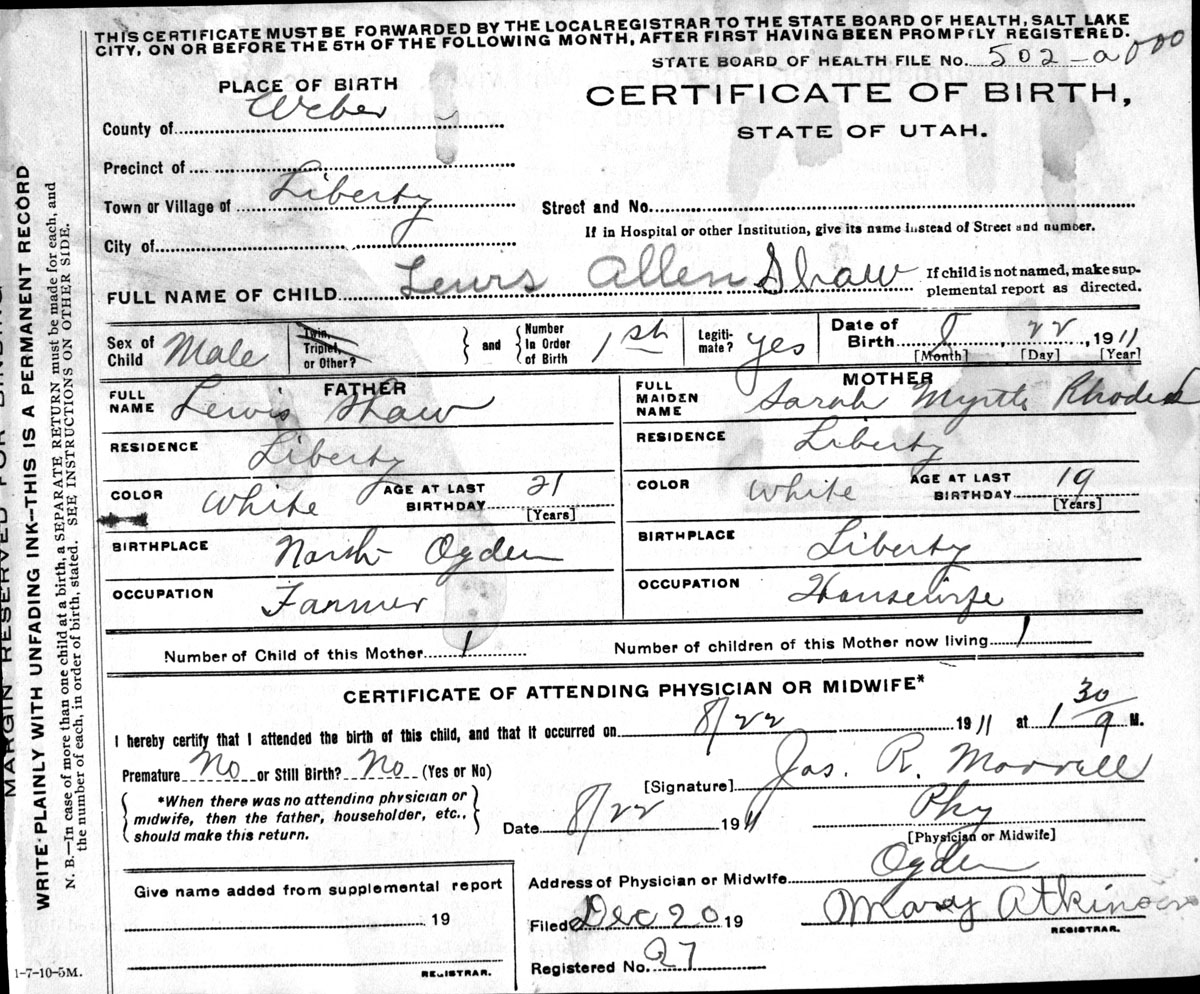 THIS CERTIFICATE MUST BE FORWARDED BY THE LOCAL REGISTRAR TO THE STATE BOARD OF HEALTH, SALT LAKE
CITY, ON OR BEFORE THE 5TH OF THE FOLLOWING MONTH, AFTER FIRST HAVING BEEN PROMPTLY REGISTERED.
STATE BOARD OF HEALTH FILE No. 502-a
PLACE OF BIRTH
CERTIFICATE OF BIRTH,
STATE OF UTAH.
County of Weber
Precinct of
Town or Village of Liberty
Street and No.
If in Hospital or other Institution, give its name instead of Street and number.
City of
FULL NAME OF CHILD Lewis Allen Shaw
If child is not named, make sup-
plemental report as directed.
Sex of Child Male
Twin, Triplet, or Other?
and
Number In Order of Birth 1st
Legiti-mate? yes
Date of Birth 8 22, 1911
[Month] [Day] [Year]
FATHER
FULL NAME Lewis Shaw
RESIDENCE Liberty
COLOR White AGE AT LAST BIRTHDAY 21
[Years]
BIRTHPLACE North Ogden
OCCUPATION Farmer
MOTHER
FULL MAIDEN NAME Sarah Myrtle Rhodes
RESIDENCE Liberty
COLOR White AGE AT LAST BIRTHDAY 19
[Years]
BIRTHPLACE Liberty
OCCUPATION Housewife
Number of Child of this Mother 1 Number of children of this Mother now living 1
CERTIFICATE OF ATTENDING PHYSICIAN OR MIDWIFE*
I hereby certify that I attended the birth of this child, and that it occurred on 8/22 1911 at 1 30 M.
Premature No or Still Birth? No (Yes or No)
*When there was no attending physician or
midwife, then the father, householder, etc.,
should make this return.
[Signature] Jas. R. Morrell
Date 8/22 1911 Phy
[Physician or Midwife]
Address of Physician or Midwife Ogden
Give name added from supplemental report
19
REGISTRAR.
Filed Dec 20 19 Mary Atkinson
REGISTRAR.
Registered No. 27
1-7-10-5M.
MARGIN RESERVED FOR BINDING
WRITE PLAINLY WITH UNFADING INK—THIS IS A PERMANENT RECORD
N. B.—In case of more than one child at a birth, a SEPARATE RETURN must be made for each, and
the number of each, in order of birth, stated. SEE INSTRUCTIONS ON OTHER SIDE.